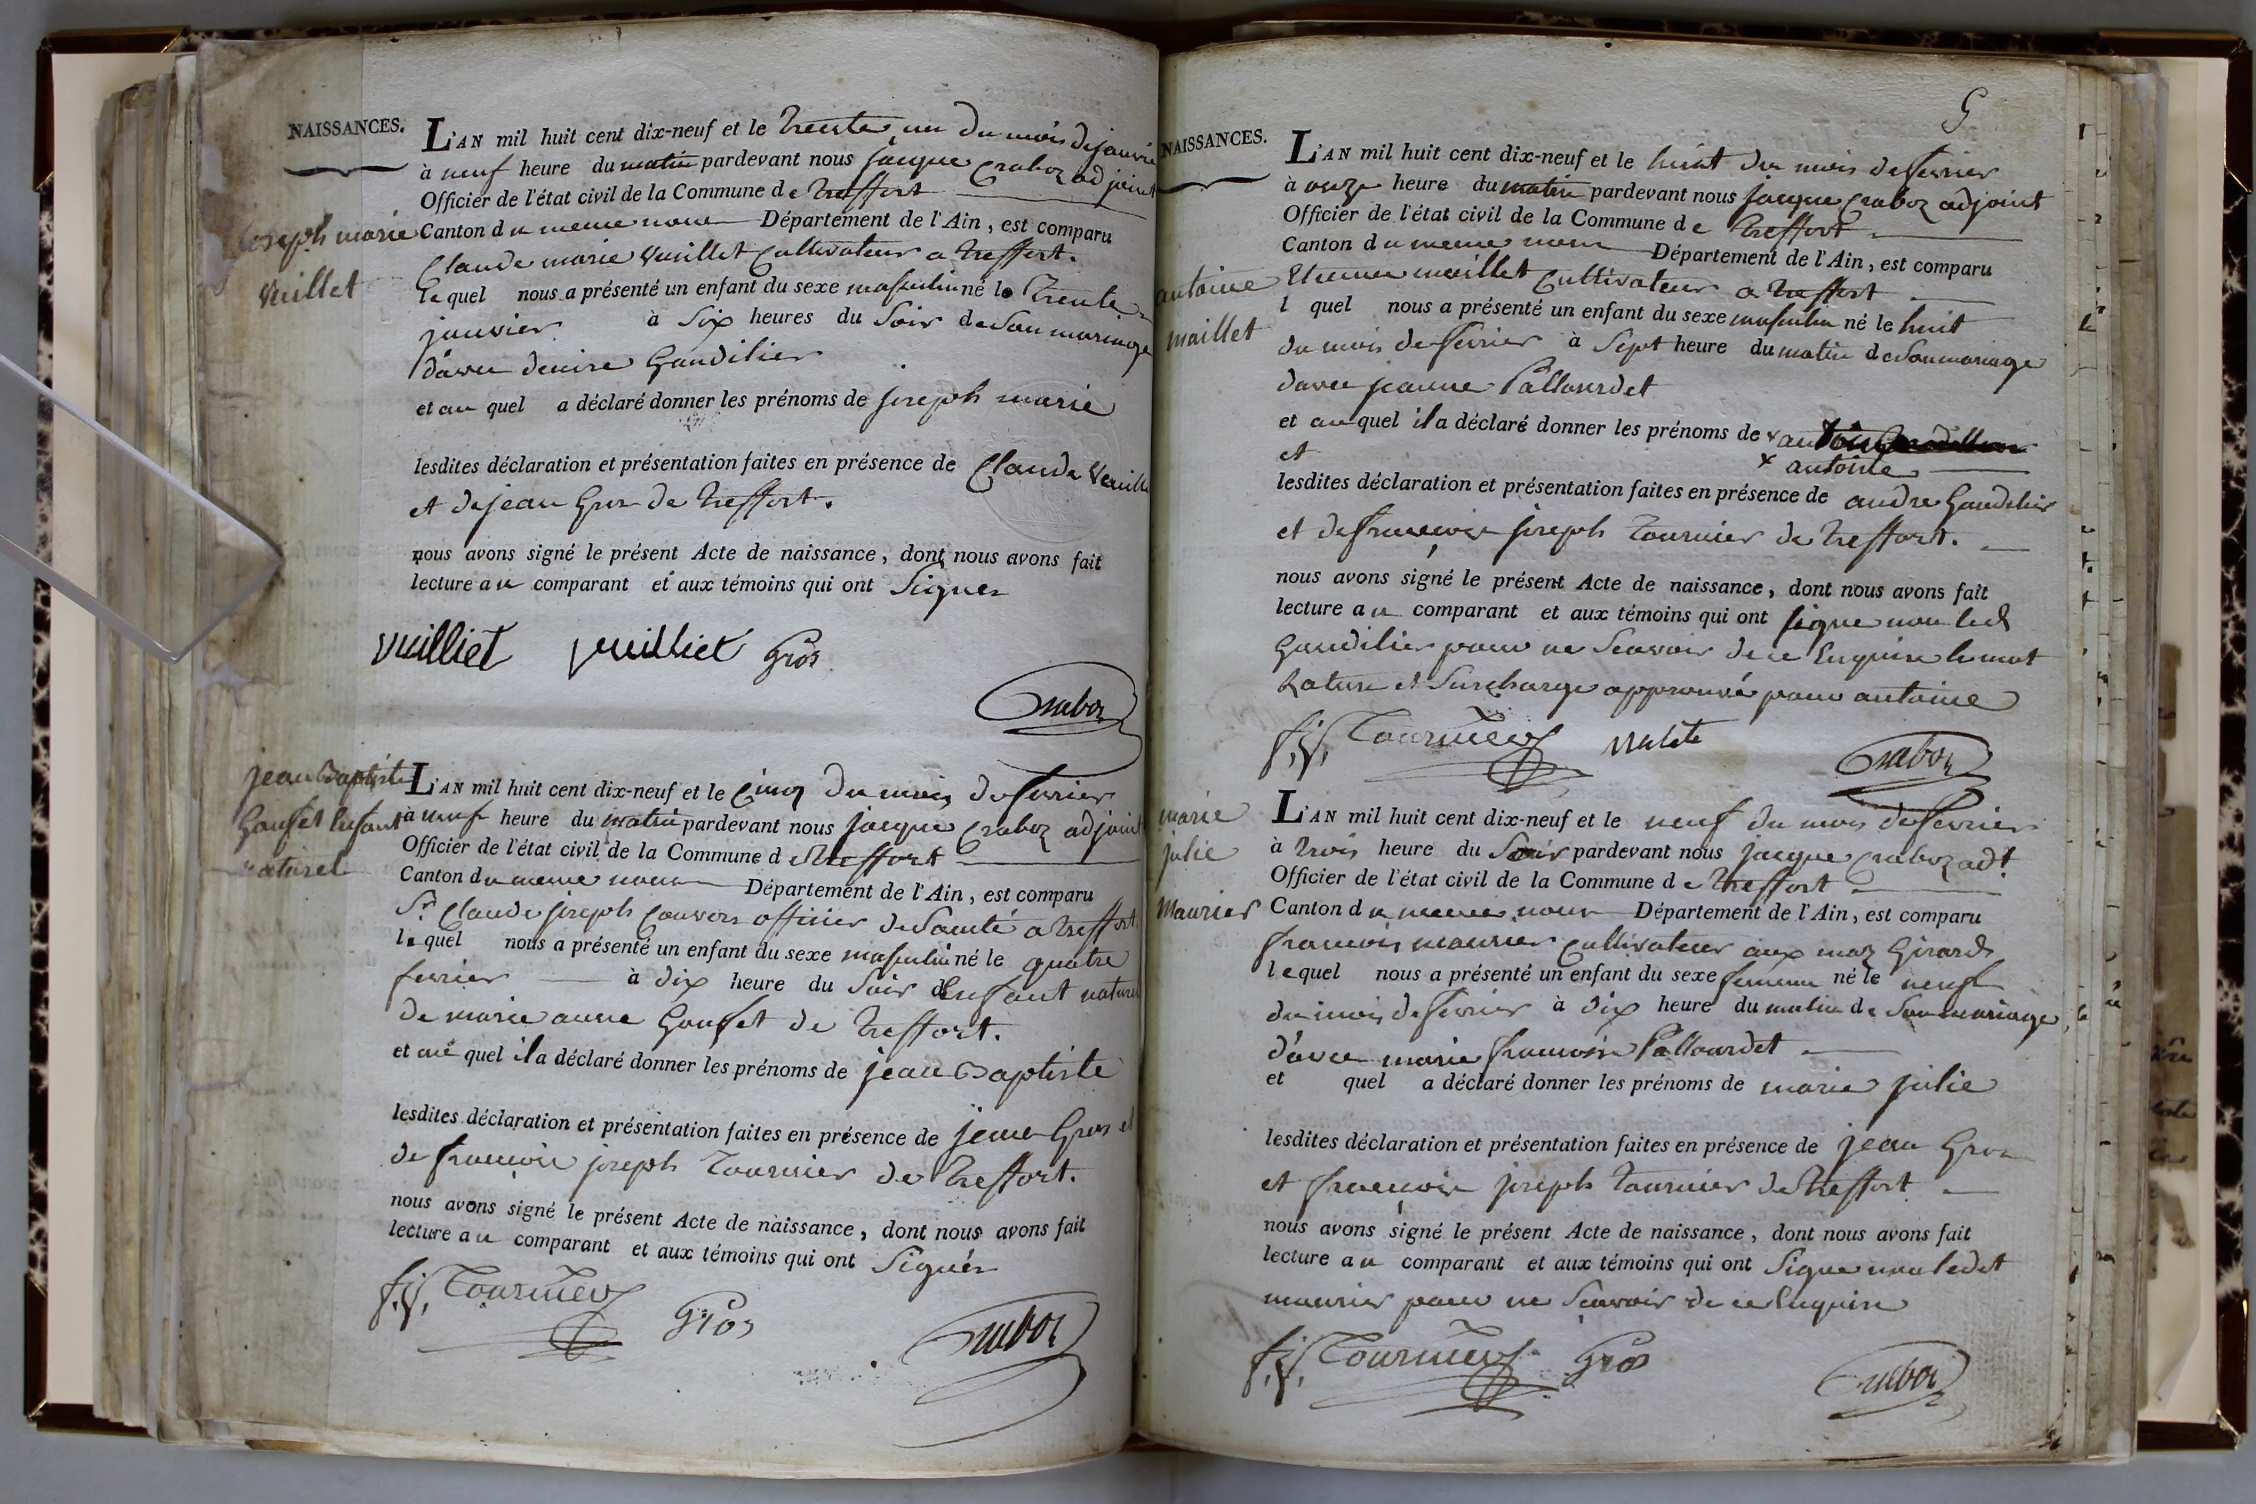 NAISSANCES.
L'AN mil huit cent dix-neuf et le trente un du mois de janvier
à neuf heure du matin pardevant nous jacque Craboz adjoint
Officier de l'état civil de la Commune de treffort
Canton du meme nom Département de l'Ain, est comparu
Claude marie Vuillet Cultivateur a treffort.
lequel nous a présenté un enfant du sexe masculin né le trente
janvier à Six heures du Soir de Son mariage
d'avec denise Gandilier
et au quel a déclaré donner les prénoms de joseph marie
lesdites déclaration et présentation faites en présence de Claude Vuillet
et de jean Gros de treffort.
nous avons signé le présent Acte de naissance, dont nous avons fait
lecture au comparant et aux témoins qui ont Signer
vuilliet vuilliet Gros
Craboz
joseph marie
Vuillet
jean Baptiste
Gonset Enfant
naturel
L'AN mil huit cent dix-neuf et le Cinq du mois de fevrier
à neuf heure du matin pardevant nous jacque Craboz adjoint
Officier de l'état civil de la Commune de treffort
Canton du meme nom Département de l'Ain, est comparu
Sr. Claude joseph Couvers officier de Santé a treffort
lequel nous a présenté un enfant du sexe masculin né le quatre
fevrier à dix heure du Soir d Enfant naturel
de marie anne Gonset de treffort.
et au quel il a déclaré donner les prénoms de jean Baptiste
lesdites déclaration et présentation faites en présence de jean Gros et
de francois joseph tournier de treffort.
nous avons signé le présent Acte de naissance, dont nous avons fait
lecture au comparant et aux témoins qui ont Signér
f.j. Tournier Gros Craboz
5
NAISSANCES.
L'AN mil huit cent dix-neuf et le huit du mois de fevrier
à onze heure du matin pardevant nous jacque Craboz adjoint
Officier de l'état civil de la Commune de treffort
Canton du meme nom Département de l'Ain, est comparu
Etienne maillet Cultivateur a treffort
l quel nous a présenté un enfant du sexe masculin né le huit
du mois de fevrier à Sept heure du matin de Son mariage
davec jeanne Pallourdet
et au quel il a déclaré donner les prénoms de
et x antoine
lesdites déclaration et présentation faites en présence de andre Gandilier
et de francois joseph tournier de treffort.
nous avons signé le présent Acte de naissance, dont nous avons fait
lecture au comparant et aux témoins qui ont signe non led
Gandilier pour ne Scavoir de ce Enquire le mot
Rature et Surcharge approuvé pour antoine
f.j. Tournier Craboz
antoine
maillet
marie
julie
Maurier
L'AN mil huit cent dix-neuf et le neuf du mois de fevrier
à trois heure du Soir pardevant nous jacque Craboz adt.
Officier de l'état civil de la Commune de treffort
Canton du meme nom Département de l'Ain, est comparu
francois maurier Cultivateur aux maz Girards
lequel nous a présenté un enfant du sexe feminin né le neuf
du mois de fevrier à dix heure du matin de Son mariage
d'avec marie francoise Pallourdet
et quel a déclaré donner les prénoms de marie julie
lesdites déclaration et présentation faites en présence de jean Gros
et francois joseph tournier de treffort
nous avons signé le présent Acte de naissance, dont nous avons fait
lecture au comparant et aux témoins qui ont Signe non ledet
maurier pour ne Scavoir de ce Enquire
f.j. Tournier Gros Craboz